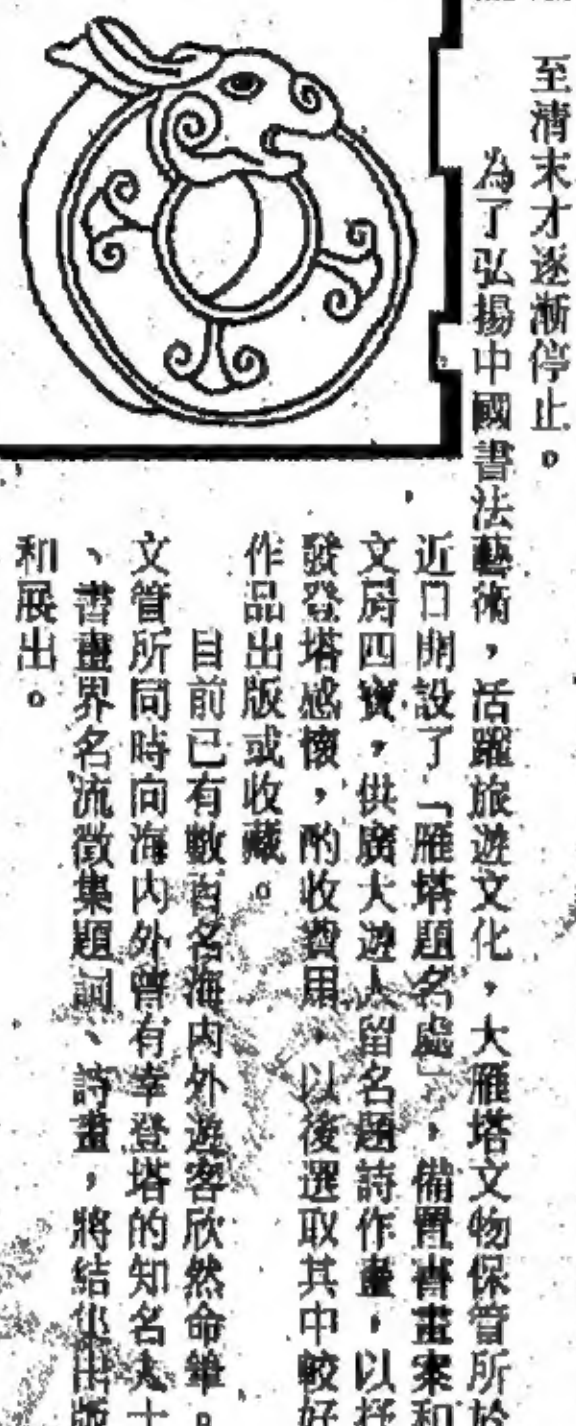 至清末才逐漸停止。
為了弘揚中國書法藝術，活躍旅遊文化，大雁塔文物保管所於
近日開設了「雁塔題名處」，備置書畫案和
文房四寶，供廣大遊人留名題詩作畫，以抒
發登塔感懷，酌收費用，以後選取其中較好
作品出版或收藏。
目前已有數百名海內外遊客欣然命筆。
文管所同時向海內外曾有幸登塔的知名人士
、書畫界名流徵集題詞、詩畫，將結集出版
和展出。